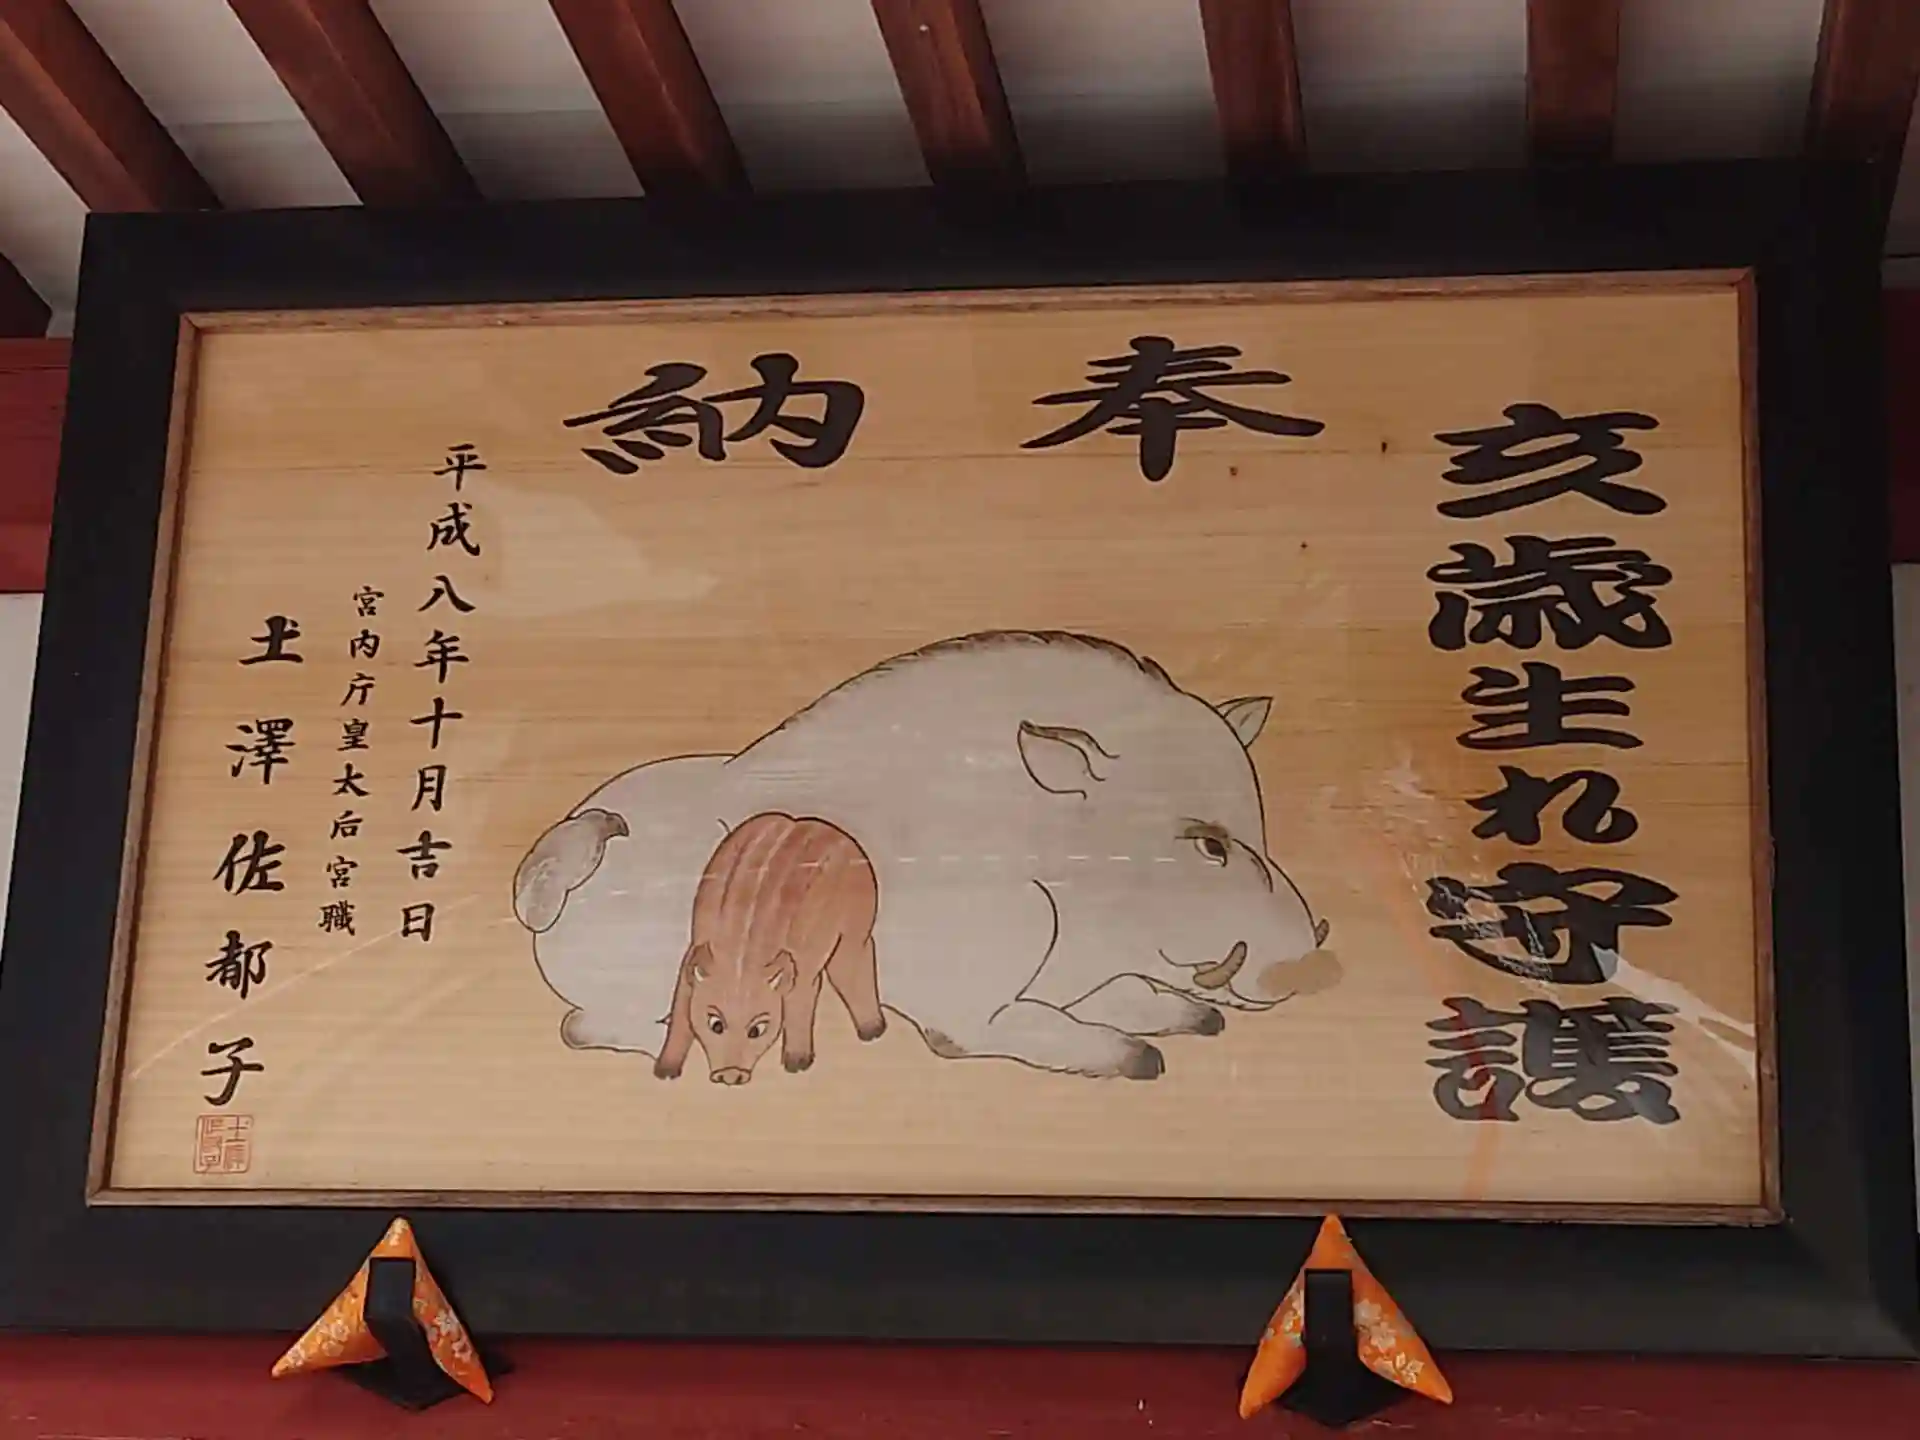 奉納
亥歳生れ守護
平成八年十月吉日
宮内庁皇太后宮職
土澤佐都子